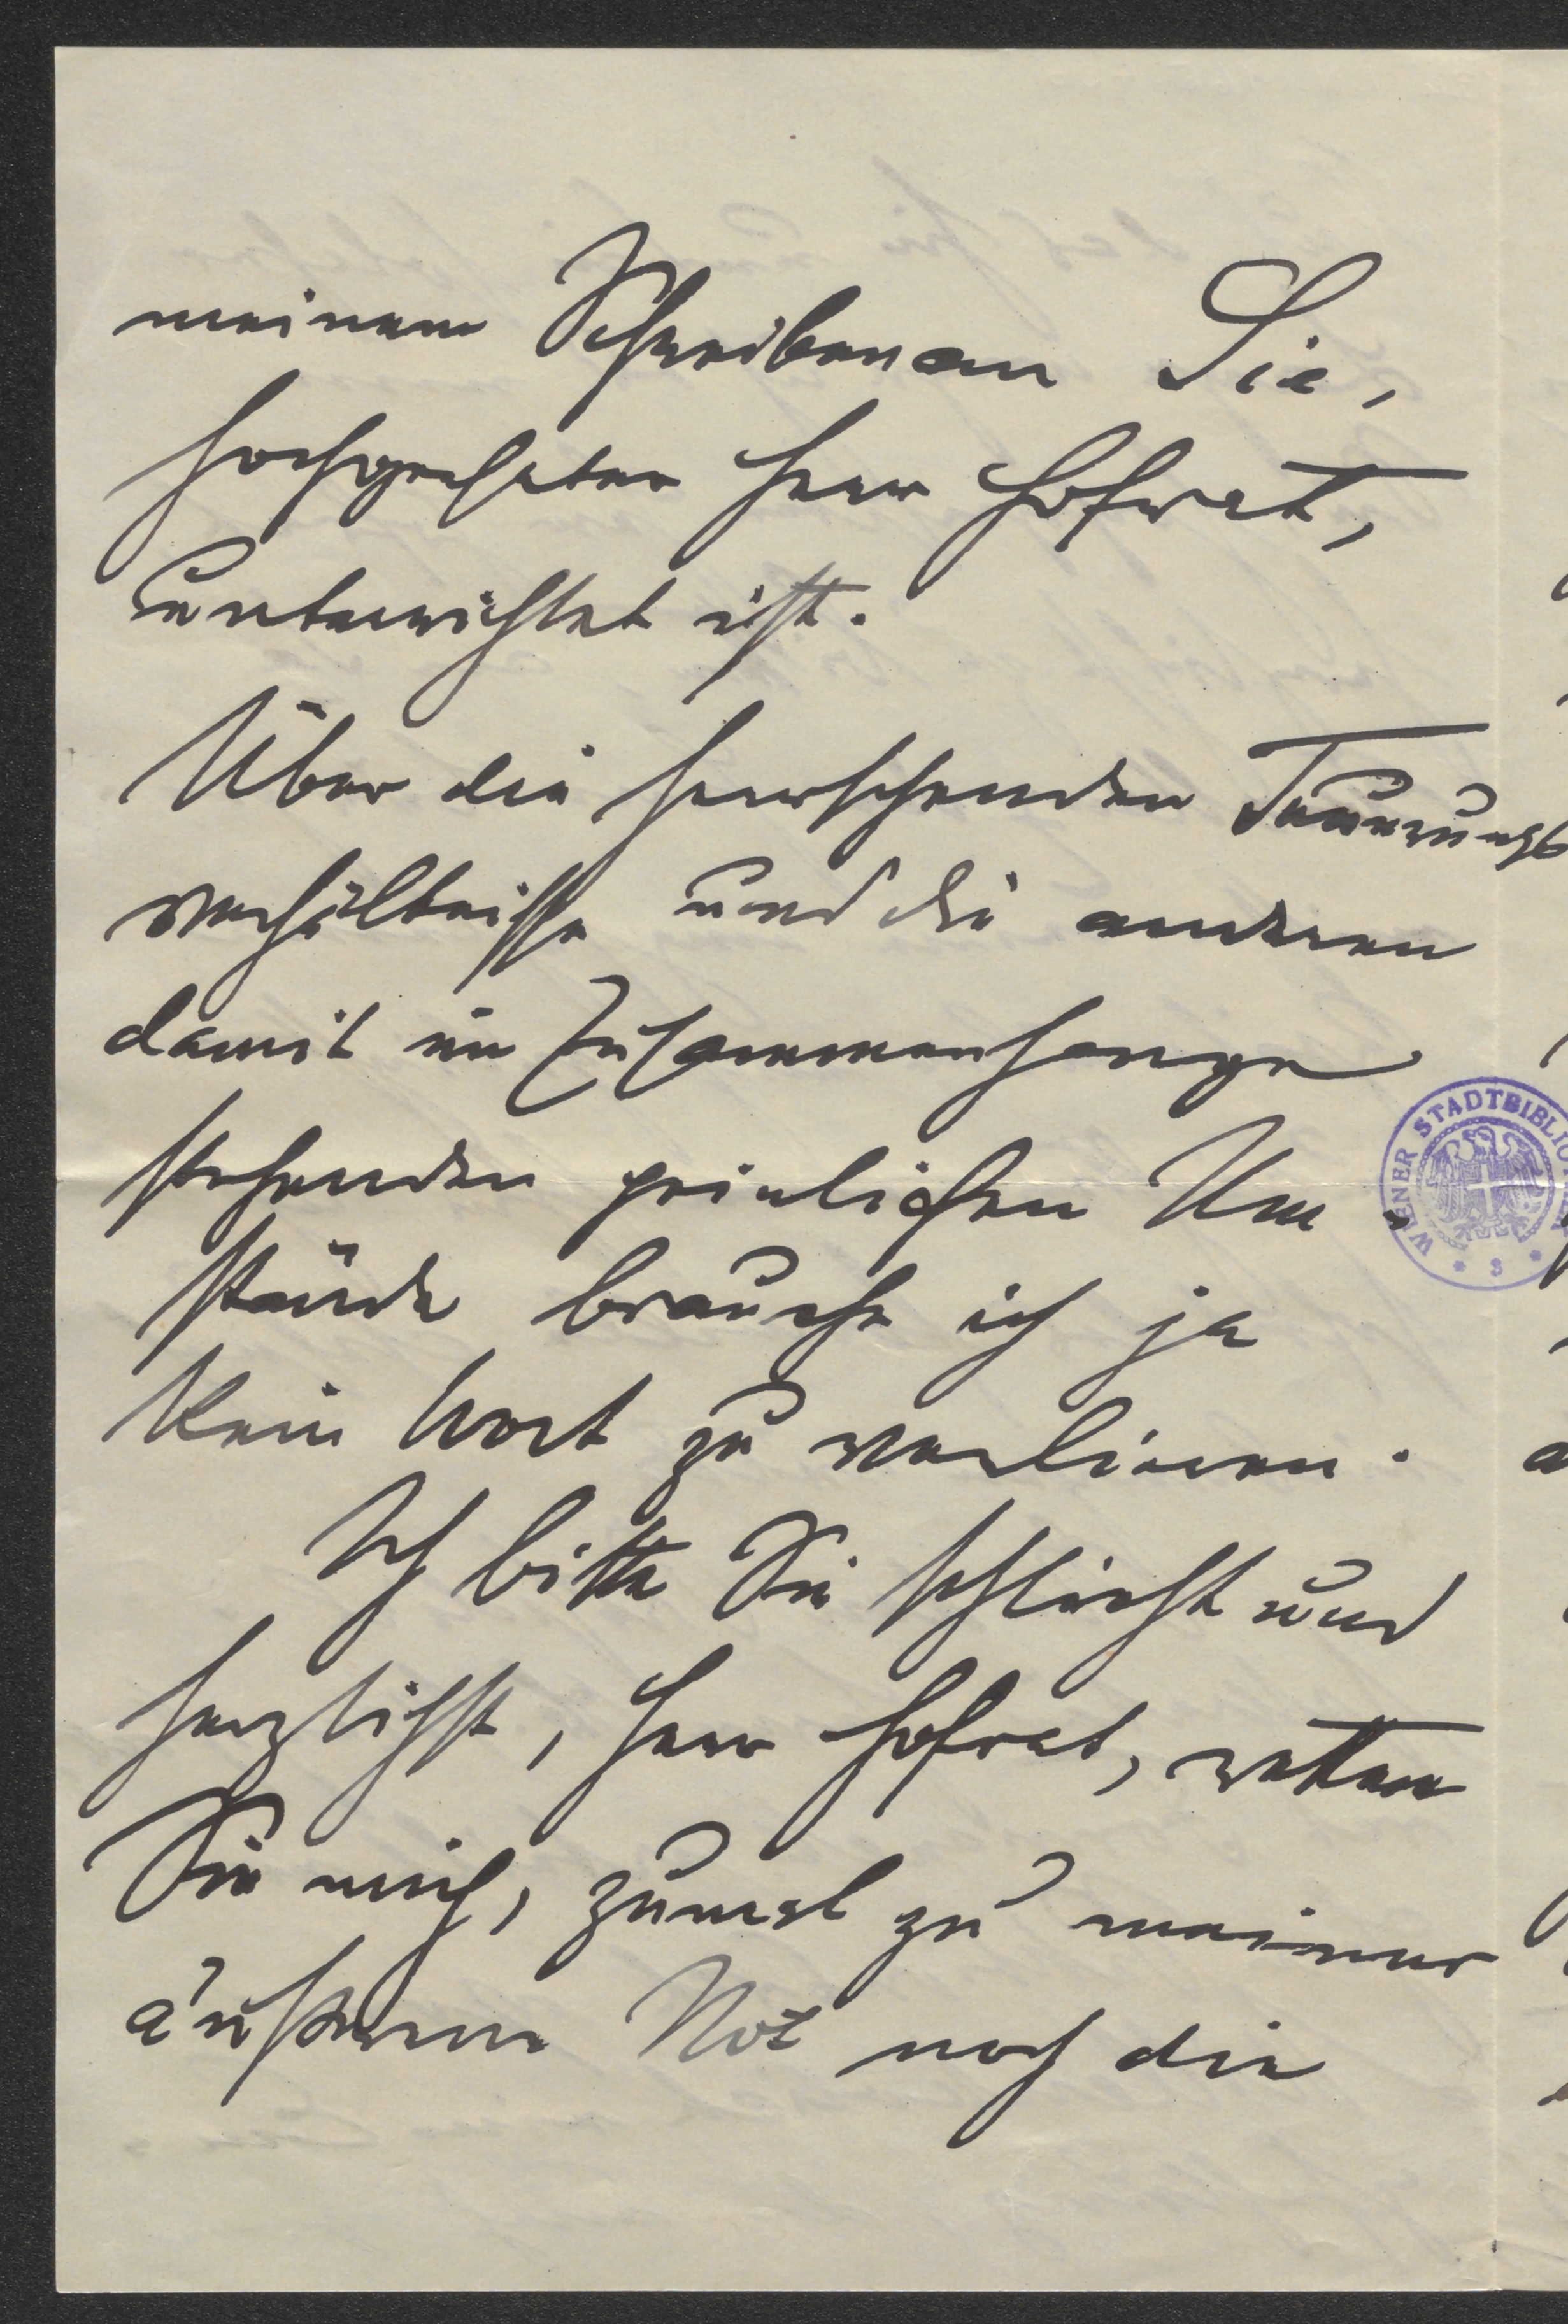 meinem Schreiben an Sie,
hochgeehrter Herr Hofrat,
unterrichtet ist.
Über die herrschenden Teuerungs
verhältnisse und die anderen
damit im Zusammenhange
stehenden peinlichen Um-
stände brauche ich ja
kein Wort zu verlieren.
Ich bitte Sie schlicht und
herzlichst, Herr Hofrat, retten
Sie mich, zumal zu meiner
äußeren Not noch die
WIENER STADTBIBLIO